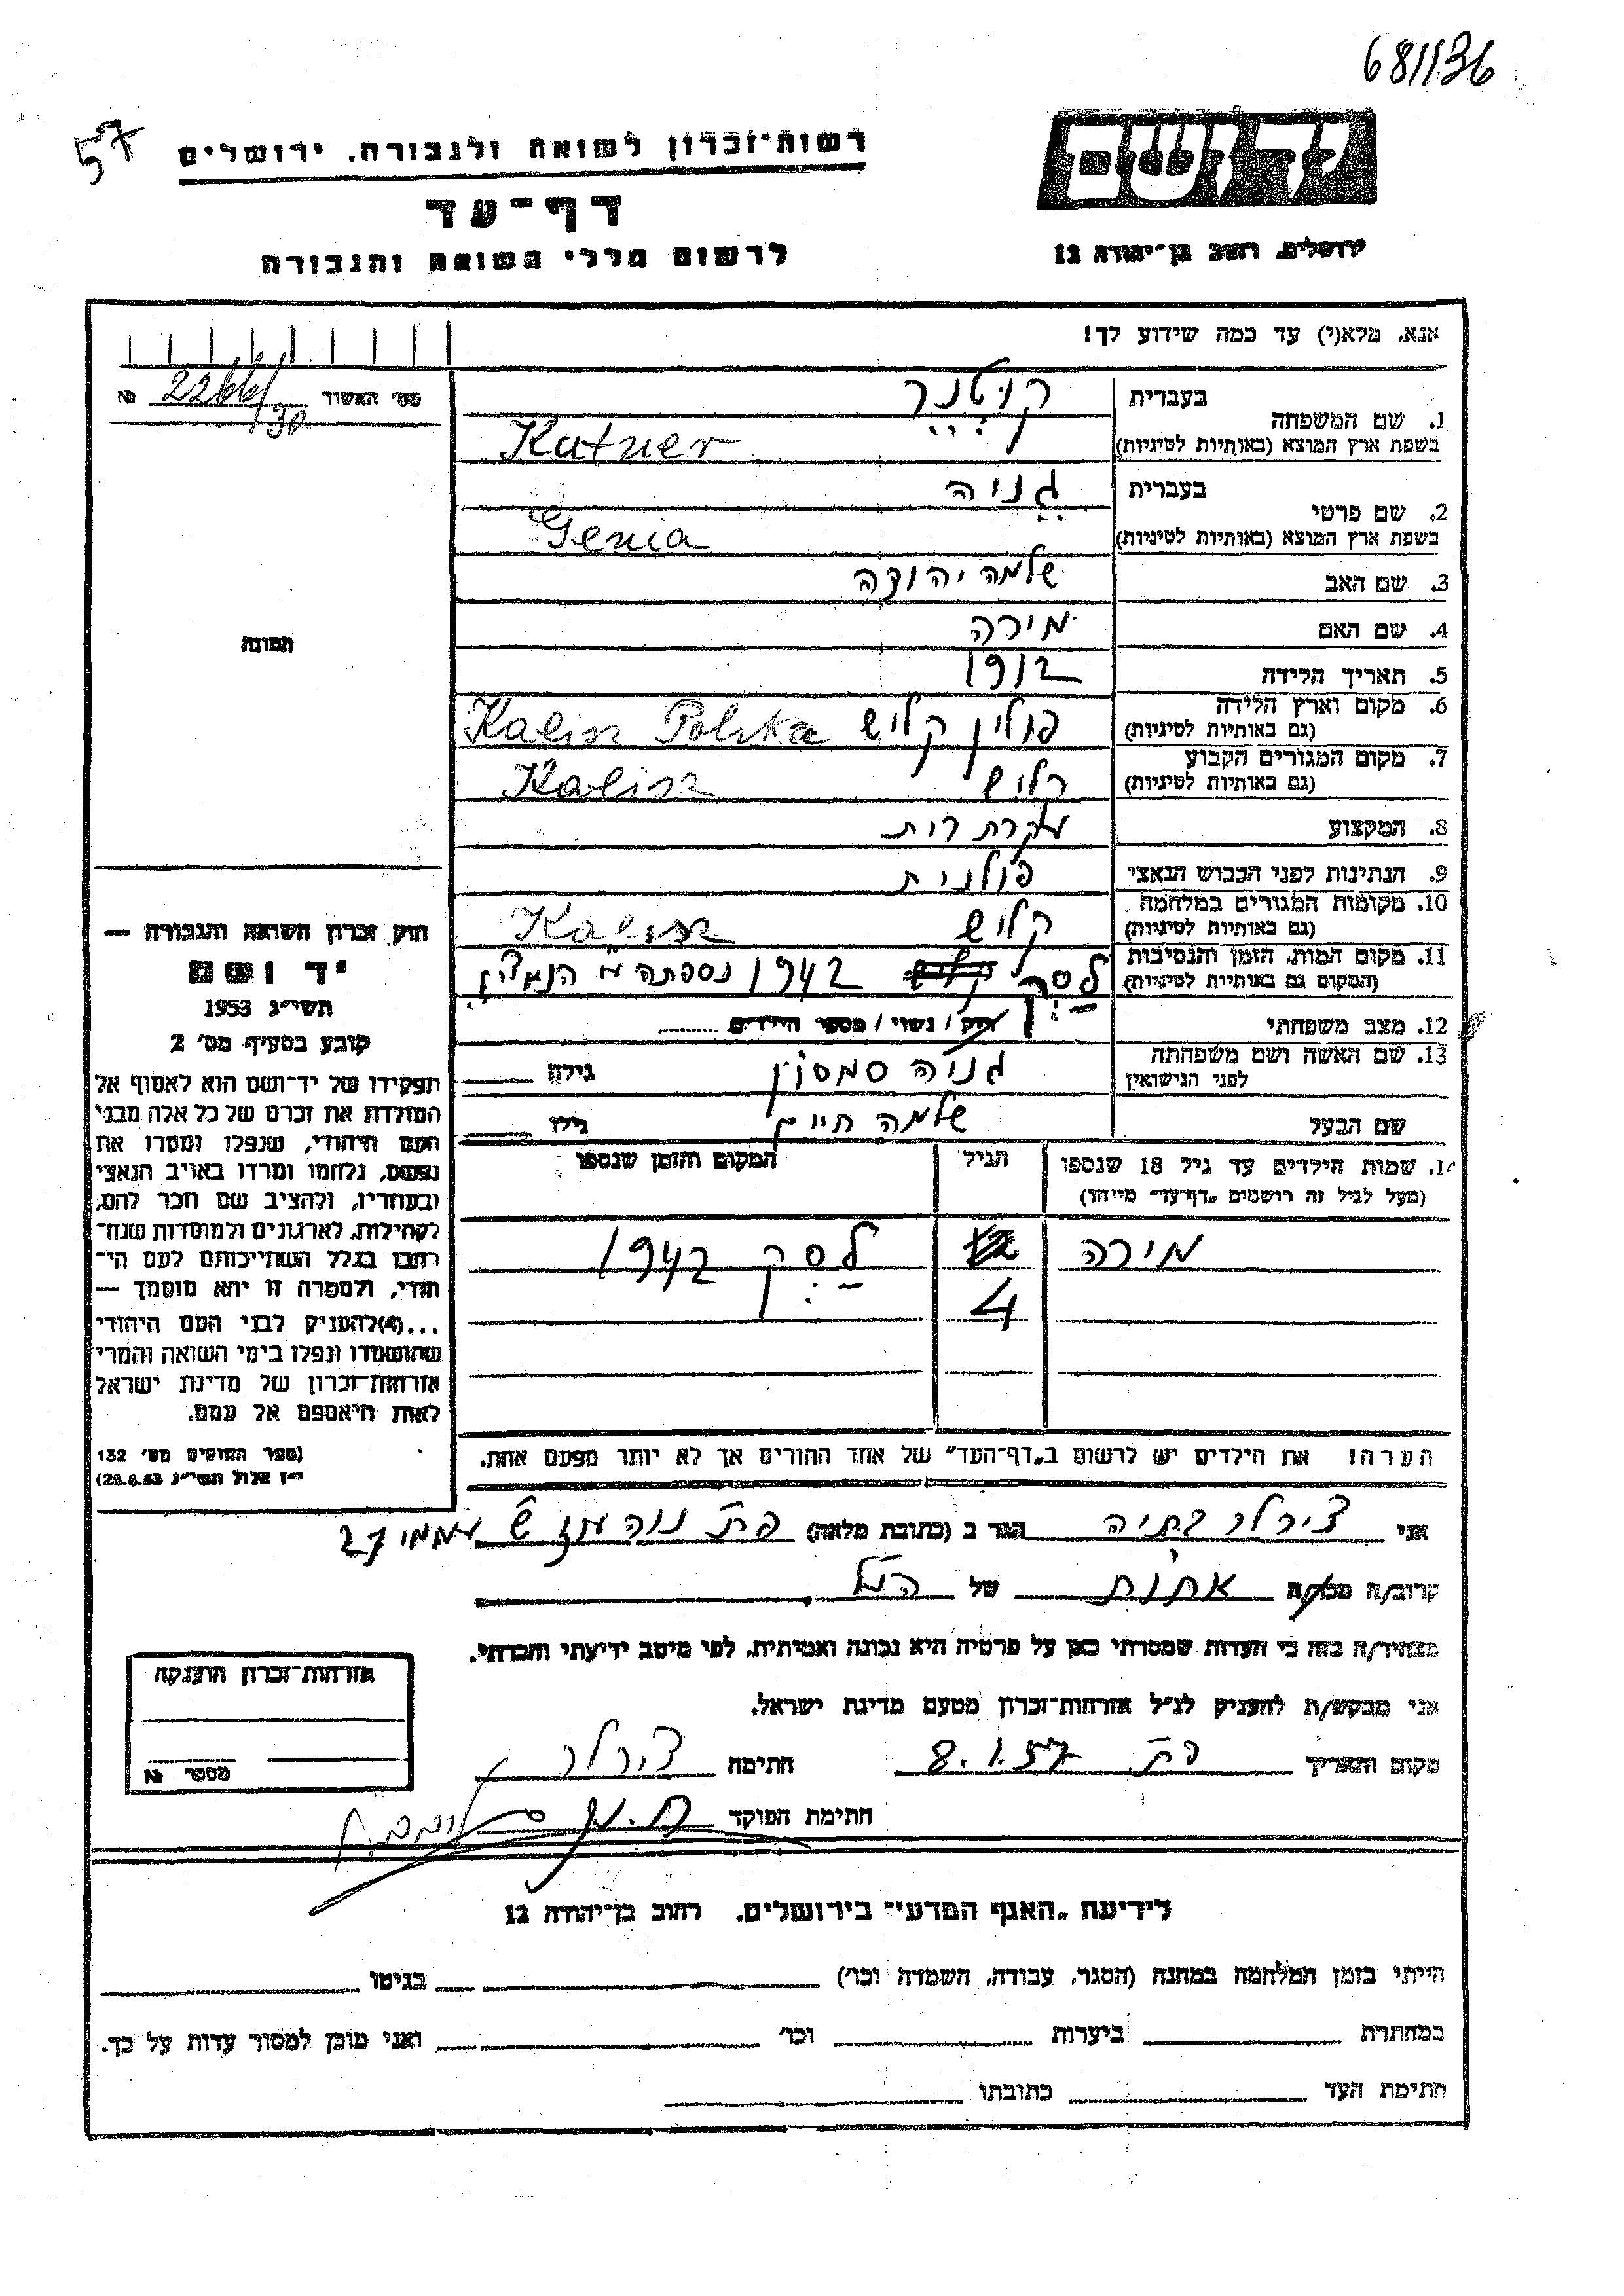 681136
57
יד ושם
רשות־זכרון לשואה ולגבורה, ירושלים
דף־עד
לרשום חללי השואה והגבורה
ירושלים, רחוב בן־יהודה 12
אנא, מלא(י) עד כמה שידוע לך!
מס׳ האשור 2266/130 №
1. שם המשפחה
בעברית
בשפת ארץ המוצא (באותיות לטיניות)
Kutner
2. שם פרטי
בעברית גניה
בשפת ארץ המוצא (באותיות לטיניות) Genia
3. שם האב שלמה יהודה
4. שם האם מירה
5. תאריך הלידה 1912
6. מקום וארץ הלידה (גם באותיות לטיניות) פולין קליש Kalisz Polska
7. מקום המגורים הקבוע (גם באותיות לטיניות) קליש Kalisz
8. המקצוע עקרת בית
9. הנתינות לפני הכבוש הנאצי פולנית
10. מקומות המגורים במלחמה (גם באותיות לטיניות) קליש Kalisz
11. מקום המות, הזמן והנסיבות (המקום גם באותיות לטיניות) לסק 1942 נספתה ע״י הנאצים
12. מצב משפחתי רווק / נשוי / מספר הילדים
13. שם האשה ושם משפחתה לפני הנישואין גניה סמסון גילה
שם הבעל שלמה חיים גילו
14. שמות הילדים עד גיל 18 שנספו
(מעל לגיל זה רושמים „דף־עד״ מיוחד)
הגיל
המקום והזמן שנספו
מירה 4 לסק 1942
הערה! את הילדים יש לרשום ב„דף־העד״ של אחד ההורים אך לא יותר מפעם אחת.
תמונה
חוק זכרון השואה והגבורה —
יד ושם
תשי״ג 1953
קובע בסעיף מס׳ 2
תפקידו של יד־ושם הוא לאסוף אל
המולדת את זכרם של כל אלה מבני
העם היהודי, שנפלו ומסרו את
נפשם, נלחמו ומרדו באויב הנאצי
ובעוזריו, ולהציב שם וזכר להם,
לקהילות, לארגונים ולמוסדות שנח־
רבו בגלל השתייכותם לעם הי־
הודי, ולמטרה זו יהא מוסמך —
...(4) להעניק לבני העם היהודי
שהושמדו ונפלו בימי השואה והמרי
אזרחות־זכרון של מדינת ישראל
לאות היאספם אל עמם.
(ספר החוקים מס׳ 132
י״ז אלול תשי״ג 28.8.53)
אני בתיה הגר ב (כתובת מלאה) פת נוה עוז ש עממי 27
קרוב/ה מכר/ה אחות של הנ״ל
מצהיר/ה בזה כי העדות שמסרתי כאן על פרטיה היא נכונה ואמיתית, לפי מיטב ידיעתי והכרתי.
אני מבקש/ת להעניק לנ״ל אזרחות־זכרון מטעם מדינת ישראל.
מקום ותאריך פת 8.1.57 חתימה
חתימת הפוקד
אזרחות־זכרון הוענקה
מספר №
לידיעת „האגף המדעי״ בירושלים, רחוב בן־יהודה 12
הייתי בזמן המלחמה במחנה (הסגר, עבודה, השמדה וכו׳) בגיטו
במחתרת ביערות וכו׳ ואני מוכן למסור עדות על כך.
חתימת העד כתובתו